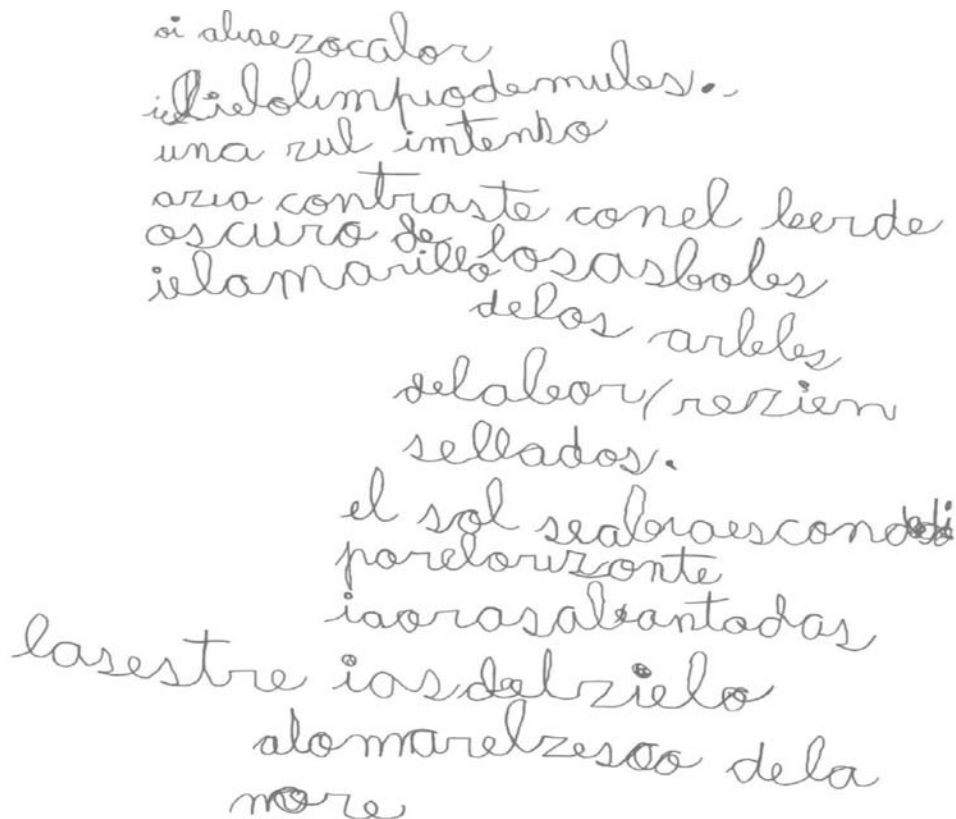 oi abaezocalor
iel cielolimpiodemules.
una zul imtenso
azia contraste conel berde
oscuro de losasboles
ielamarillo
delos arbeles
delabor/rezien
sellados.
el sol seabraescondedi
porelorizonte
iaorasabantadas
lasestre ias delzielo
alomarelzesoo dela
more